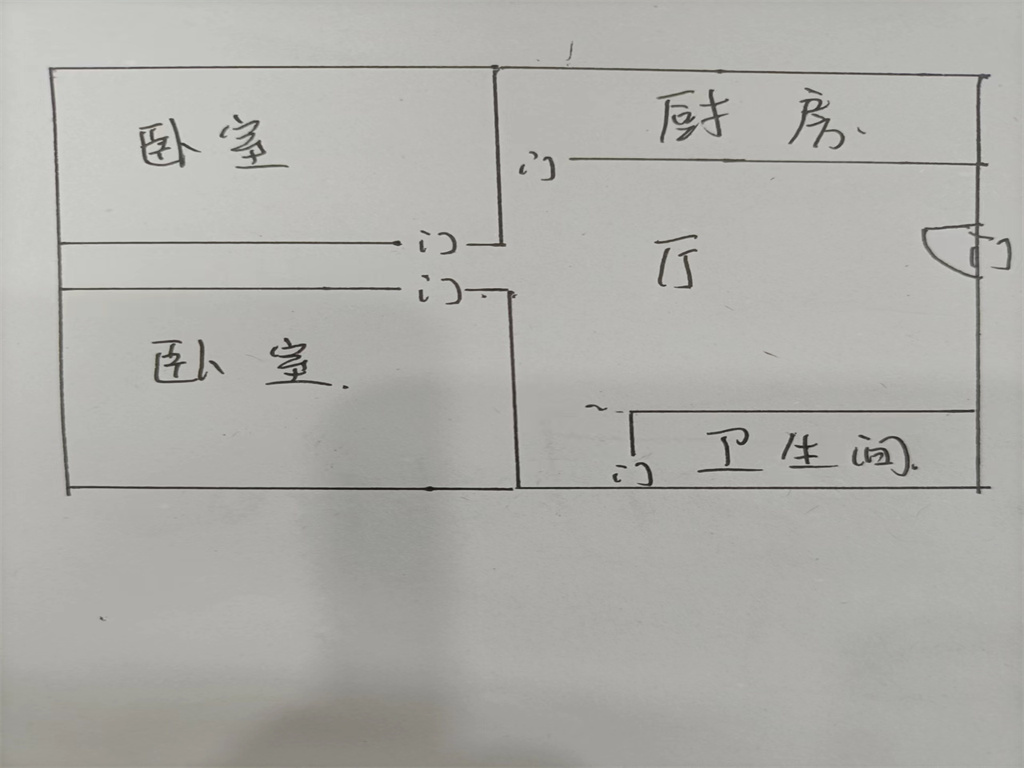 卧室
厨房
门
门
厅
门
门
卧室
卫生间
门